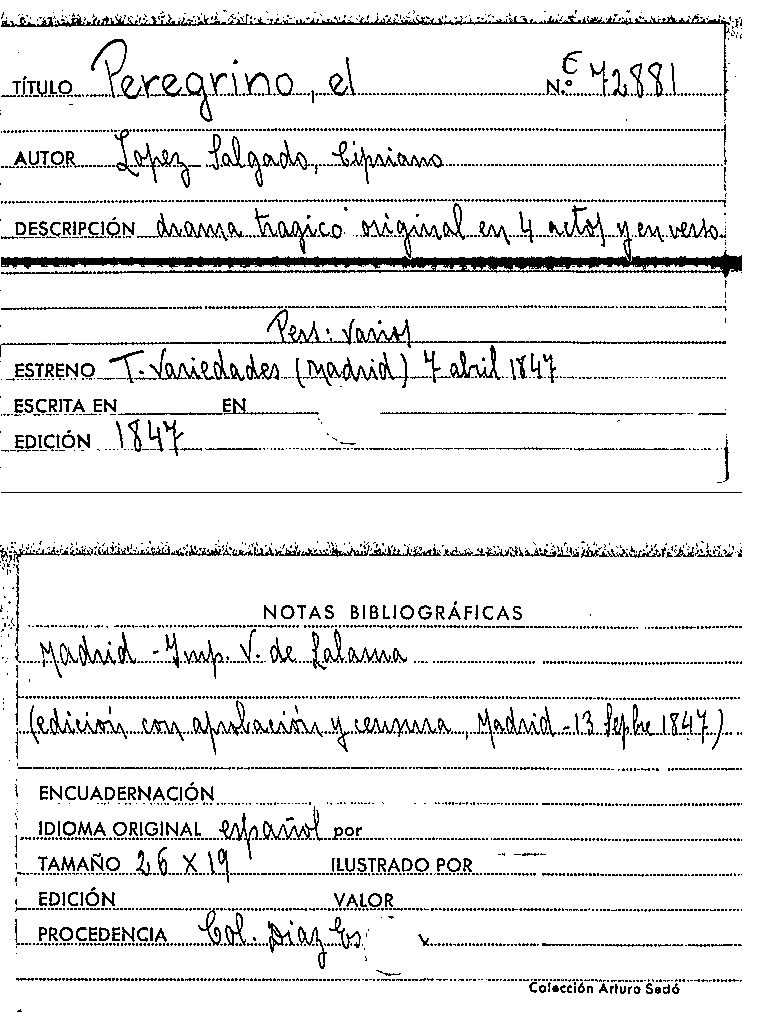 TÍTULO Peregrino, el N.º C 72881
AUTOR Lopez Salgado, Cipriano
DESCRIPCIÓN drama tragico original en 4 actos y en verso.
Pers: varios
ESTRENO T. Variedades (Madrid) 7 abril 1847
ESCRITA EN EN
EDICIÓN 1847
NOTAS BIBLIOGRÁFICAS
Madrid - Imp. V. de Lalama
(edición con aprobación y censura, Madrid - 13 Sepbre 1847)
ENCUADERNACIÓN
IDIOMA ORIGINAL español por
TAMAÑO 26 X 19 ILUSTRADO POR
EDICIÓN VALOR
PROCEDENCIA Col. Diaz Es
Colección Arturo Sedó